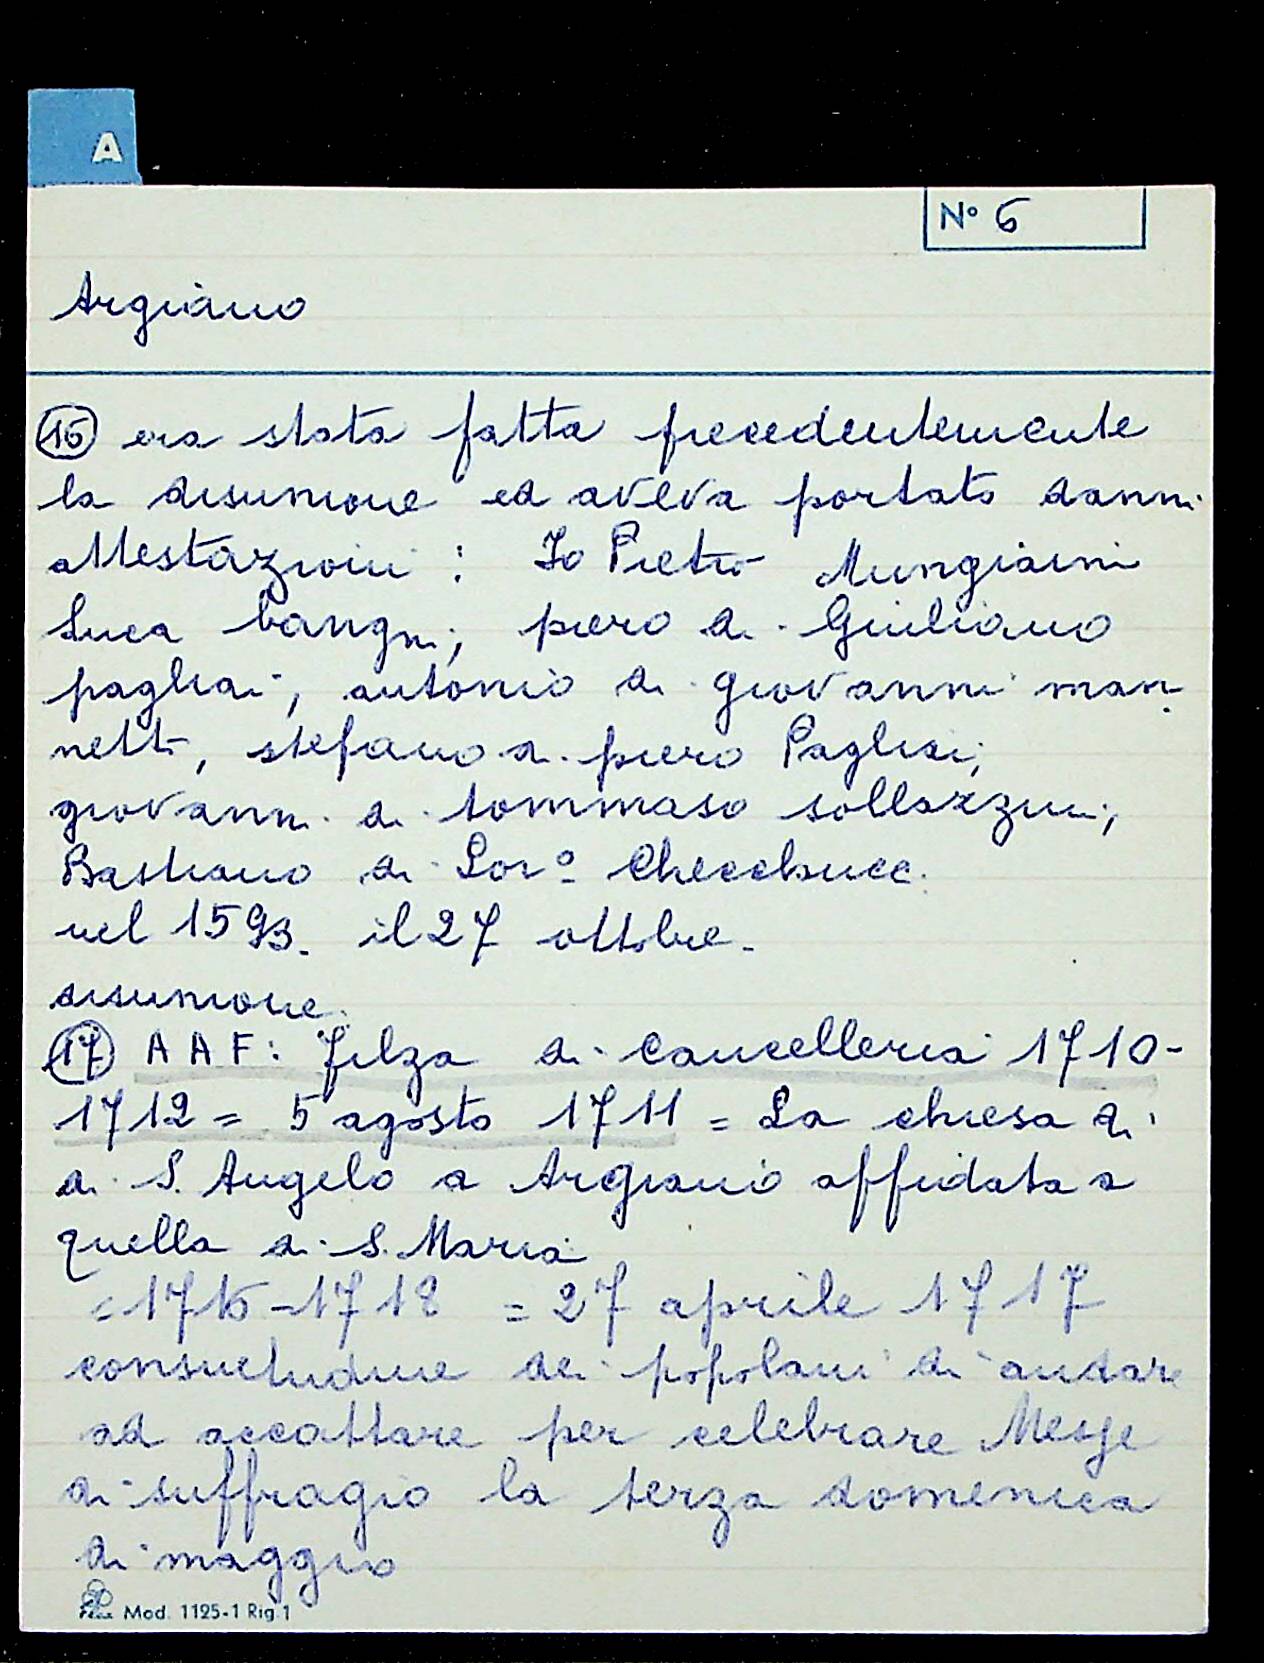 A
N° 6
Argiano
16 era stata fatta precedentemente
la disunione ed aveva portato danni
attestazioni : Io Pietro Mungiaini
Luca bangni; piero di Giuliano
pagliai; antonio di giovanni man
netti, stefano di piero Pagliai;
giovanni di tommaso sollazzini;
Bastiano di Lorº Checchucci
nel 1593. il 27 ottobre.
disunione.
17 A A F: filza di Cancelleria 1710-
1712 = 5 agosto 1711 = La chiesa di
di S. Angelo a Argiano affidata a
quella di S. Maria
= 1716-1718 = 27 aprile 1717
consuetudine dei popolani di andare
ad accattare per celebrare Messe
di suffragio la terza domenica
di maggio
Mod. 1125-1 Rig.1